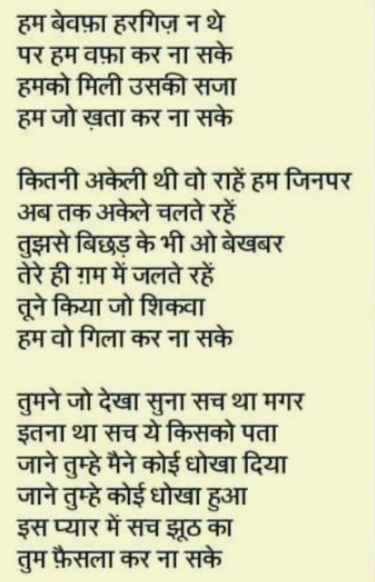 हम बेवफ़ा हरगिज़ न थे
पर हम वफ़ा कर ना सके
हमको मिली उसकी सजा
हम जो ख़ता कर ना सके
कितनी अकेली थी वो राहें हम जिनपर
अब तक अकेले चलते रहें
तुझसे बिछड़ के भी ओ बेखबर
तेरे ही ग़म में जलते रहें
तूने किया जो शिकवा
हम वो गिला कर ना सके
तुमने जो देखा सुना सच था मगर
इतना था सच ये किसको पता
जाने तुम्हे मैने कोई धोखा दिया
जाने तुम्हे कोई धोखा हुआ
इस प्यार में सच झूठ का
तुम फ़ैसला कर ना सके